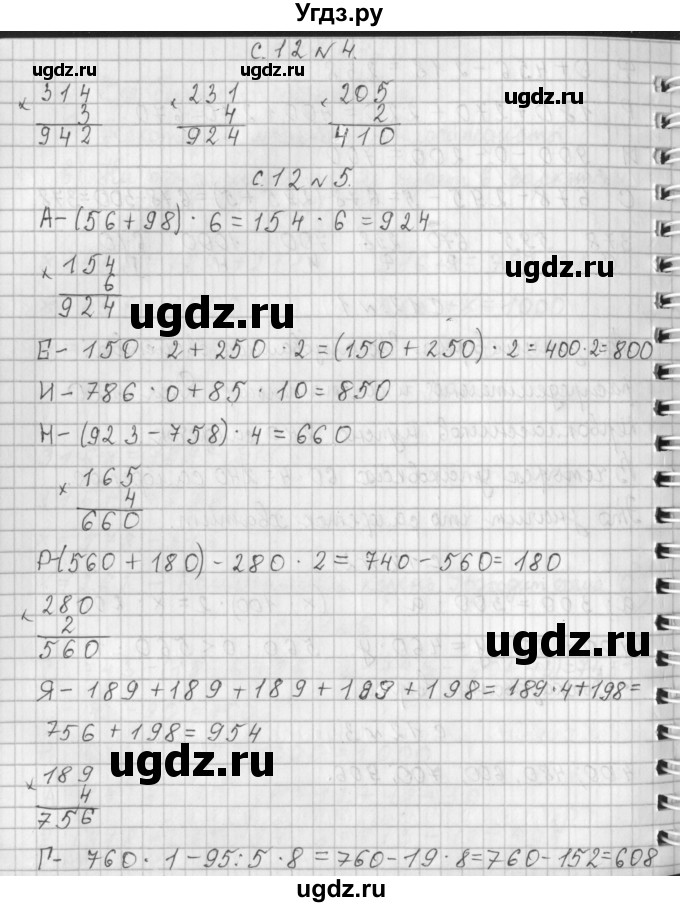 Угдз.ру
с. 12 № 4.
ugdz.ru ugdz.ru ugdz.ru
× 314 × 231 × 205
3 4 2
942 924 410
с. 12 № 5.
А - (56 + 98) · 6 = 154 · 6 = 924
× 154
6
924
ugdz.ru ugdz.ru
Е - 150 2 + 250 · 2 = (150 + 250) · 2 = 400 · 2 = 800
И - 786 · 0 + 85 · 10 = 850
Н - (923 - 758) · 4 = 660
× 165
4
660
Р - (560 + 180) - 280 · 2 = 740 - 560 = 180
× 280
2
560
ugdz.ru ugdz.ru
Я - 189 + 189 + 189 + 189 + 198 = 189 · 4 + 198 =
756 + 198 = 954
ugdz.ru ugdz.ru
× 189
4
756
Г - 760 · 1 - 95 : 5 · 8 = 760 - 19 · 8 = 760 - 152 = 608
ugdz.ru